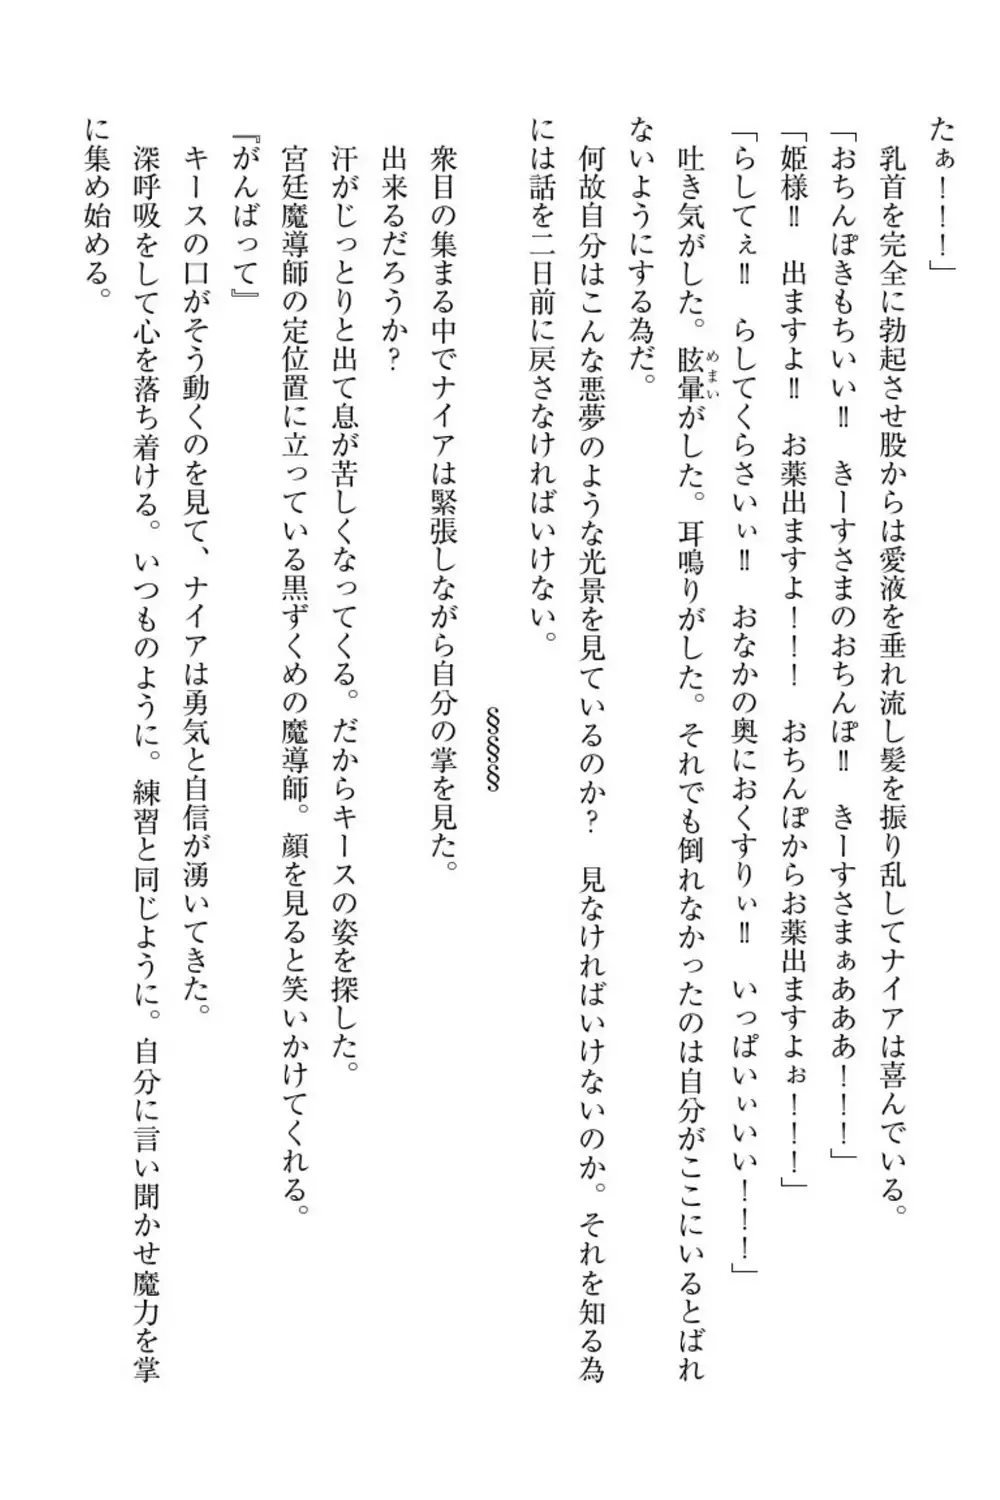 たぁ！！！」
乳首を完全に勃起させ股からは愛液を垂れ流し髪を振り乱してナイアは喜んでいる。
「おちんぽきもちいい‼　きーすさまのおちんぽ‼　きーすさまぁあああ！！！」
「姫様‼　出ますよ‼　お薬出ますよ！！！　おちんぽからお薬出ますよぉ！！！」
「らしてぇ‼　らしてくらさいぃ‼　おなかの奥におくすりぃ‼　いっぱいぃいい！！！」
吐き気がした。眩暈めまいがした。耳鳴りがした。それでも倒れなかったのは自分がここにいるとばれ
ないようにする為だ。
何故自分はこんな悪夢のような光景を見ているのか？　見なければいけないのか。それを知る為
には話を二日前に戻さなければいけない。
§§§
衆目の集まる中でナイアは緊張しながら自分の掌を見た。
出来るだろうか？
汗がじっとりと出て息が苦しくなってくる。だからキースの姿を探した。
宮廷魔導師の定位置に立っている黒ずくめの魔導師。顔を見ると笑いかけてくれる。
『がんばって』
キースの口がそう動くのを見て、ナイアは勇気と自信が湧いてきた。
深呼吸をして心を落ち着ける。いつものように。練習と同じように。自分に言い聞かせ魔力を掌
に集め始める。